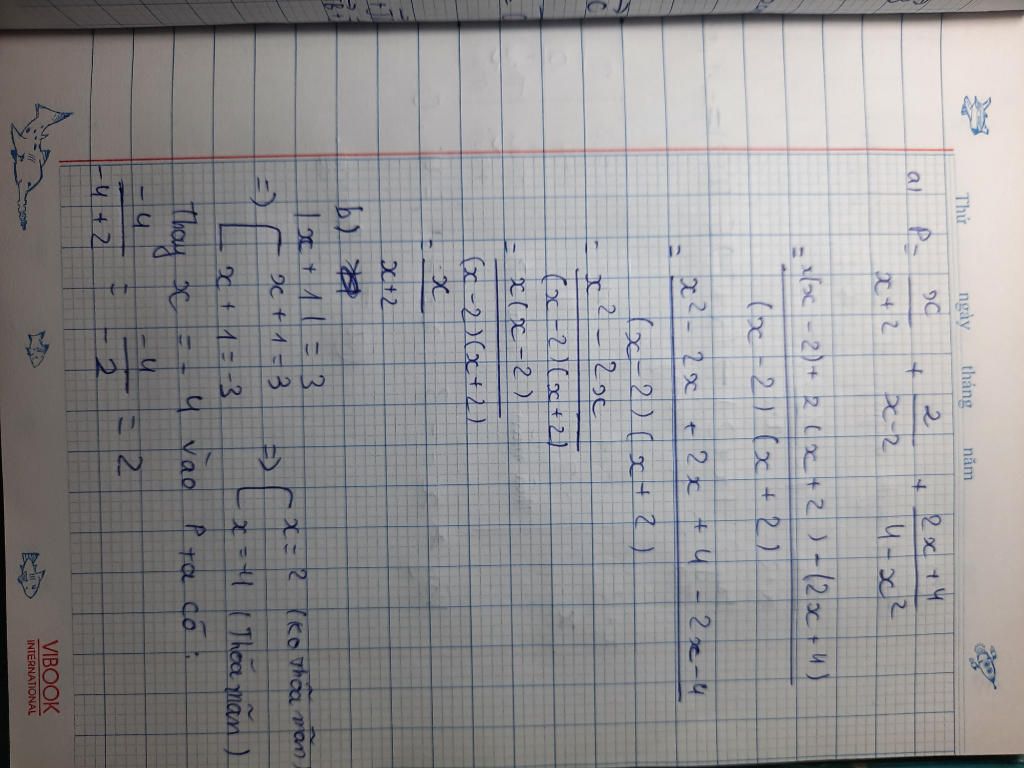 Thứ ngày tháng năm
a) P = x/(x+2) + 2/(x-2) + (2x+4)/(4-x²)
= (x(x-2) + 2(x+2) - (2x+4))/((x-2)(x+2))
= (x² - 2x + 2x + 4 - 2x - 4)/((x-2)(x+2))
= (x² - 2x)/((x-2)(x+2))
= x(x-2)/((x-2)(x+2))
= x/(x+2)
b)
|x+1| = 3
=> [ x+1=3 => [ x=2 (ko thỏa mãn)
[ x+1=-3 [ x=-4 (Thỏa mãn)
Thay x = -4 vào P ta có:
-4/(-4+2) = -4/-2 = 2
VIBOOK
INTERNATIONAL